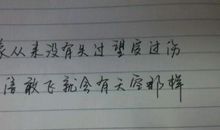 从来没有失过望度过伤
敢飞就会有天空那样